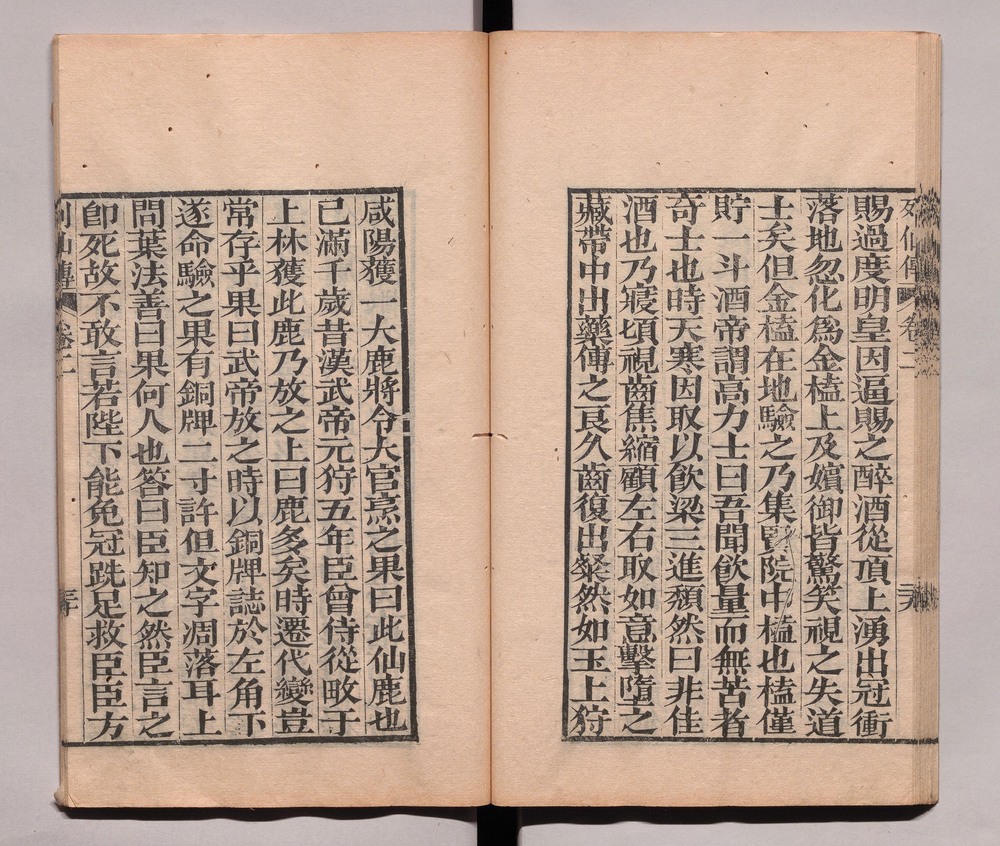 列仙傳 卷二
賜過度明皇因逼賜之醉酒從頂上湧出冠衝
落地忽化為金榼上及嬪御皆驚笑視之失道
士矣但金榼在地驗之乃集賢院中榼也榼僅
貯一斗酒帝謂高力士曰吾聞飲堇而無苦者
奇士也時天寒因取以飲梁三進頹然曰非佳
酒也乃寢頃視齒焦縮顧左右取如意擊墮之
藏帶中出藥傅之良久齒復出粲然如玉上狩
咸陽獲一大鹿將令大官烹之果曰此仙鹿也
已滿千歲昔漢武帝元狩五年臣曾侍從畋于
上林獲此鹿乃放之上曰鹿多矣時遷代變豈
常存乎果曰武帝放之時以銅牌誌於左角下
遂命驗之果有銅牌二寸許但文字凋落耳上
問葉法善曰果何人也答曰臣知之然臣言之
卽死故不敢言若陛下能免冠跣足救臣臣方
列仙傳 卷二